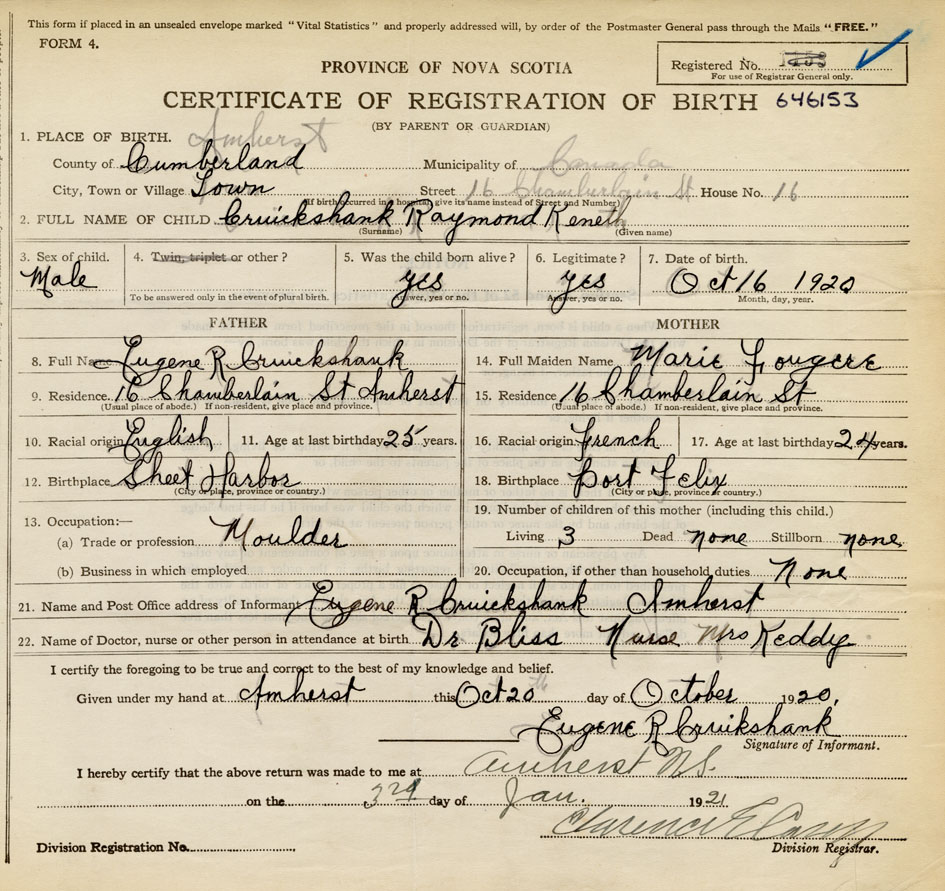 This form if placed in an unsealed envelope marked "Vital Statistics" and properly addressed will, by order of the Postmaster General pass through the Mails "FREE."
FORM 4.
Registered No.
For use of Registrar General only.
PROVINCE OF NOVA SCOTIA
CERTIFICATE OF REGISTRATION OF BIRTH 646153
(BY PARENT OR GUARDIAN)
1. PLACE OF BIRTH. Amherst
County of Cumberland Municipality of Canada
City, Town or Village Town Street 16 Chamberlain St House No. 16
(If birth occurred in a hospital give its name instead of Street and Number)
2. FULL NAME OF CHILD Cruickshank Raymond Keneth
(Surname) (Given name)
3. Sex of child. 4. Twin, triplet or other? 5. Was the child born alive? 6. Legitimate? 7. Date of birth.
Male yes yes Oct 16 1920
To be answered only in the event of plural birth. Answer, yes or no. Answer, yes or no. Month, day, year.
FATHER MOTHER
8. Full Name Eugene R Cruickshank 14. Full Maiden Name Marie Fougere
9. Residence. 16 Chamberlain St Amherst 15. Residence. 16 Chamberlain St
(Usual place of abode.) If non-resident, give place and province. (Usual place of abode.) If non-resident, give place and province.
10. Racial origin English 11. Age at last birthday 25 years. 16. Racial origin French 17. Age at last birthday 24 years.
12. Birthplace Sheet Harbor 18. Birthplace Port Felix
(City or place, province or country.) (City or place, province or country.)
13. Occupation:— 19. Number of children of this mother (including this child.)
(a) Trade or profession Moulder Living 3 Dead none Stillborn none
(b) Business in which employed 20. Occupation, if other than household duties. None
21. Name and Post Office address of Informant Eugene R Cruickshank Amherst
22. Name of Doctor, nurse or other person in attendance at birth Dr Bliss Nurse Mrs Keddy
I certify the foregoing to be true and correct to the best of my knowledge and belief.
Given under my hand at Amherst this Oct 20 day of October 1920.
Eugene R Cruikshank
Signature of Informant.
I hereby certify that the above return was made to me at Amherst N.S.
on the 3rd day of Jan. 1921
Clarence E Casey
Division Registration No. Division Registrar.